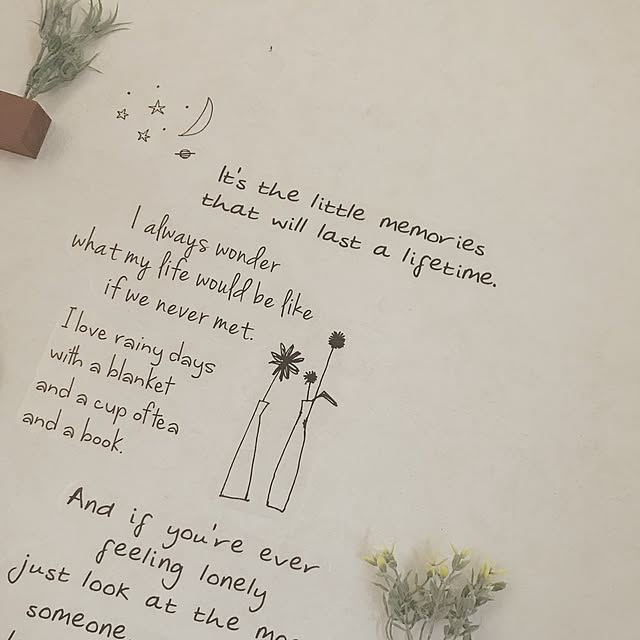 It's the little memories
that will last a lifetime.
I always wonder
what my life would be like
if we never met.
I love rainy days
with a blanket
and a cup of tea
and a book.
And if you're ever
feeling lonely
just look at the
someone